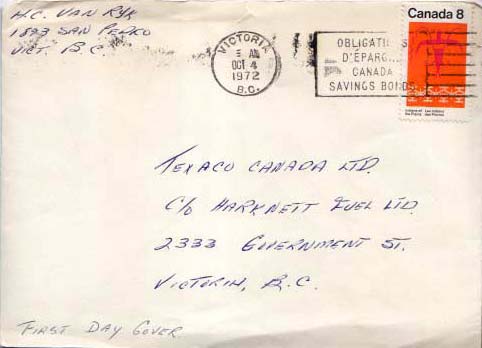 H.C. VAN RYK
1893 SAN PEDRO
VICT. B.C.
VICTORIA
AM
OCT 4
1972
B.C.
OBLIGATIONS
D'ÉPARG...
CANADA
SAVINGS BONDS
Canada 8
Indians of the Plains
Les Indiens des Plaines
TEXACO CANADA LTD.
C/O HARKNETT FUEL LTD.
2333 GOVERNMENT ST.
VICTORIA, B.C.
FIRST DAY COVER